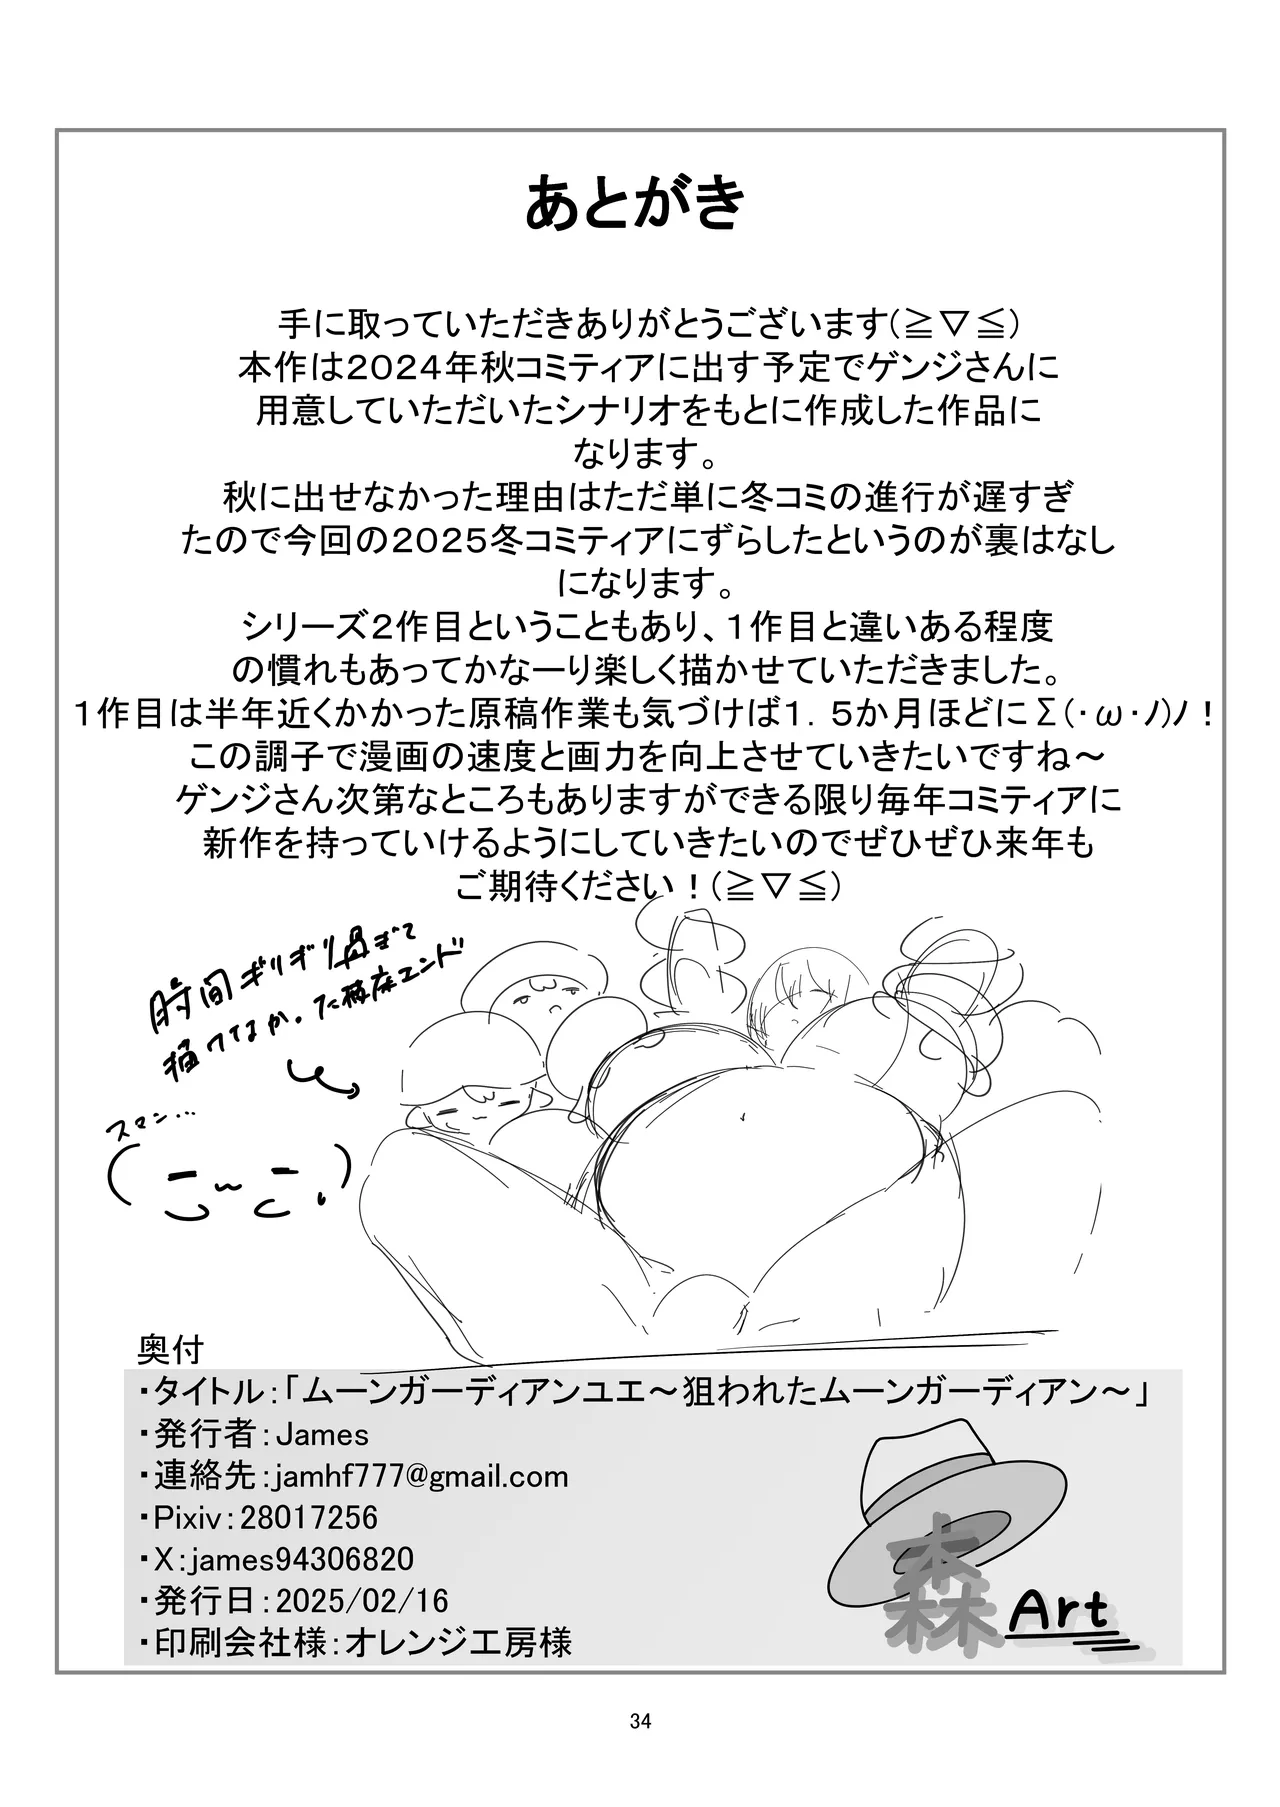 あとがき
手に取っていただきありがとうございます(≧▽≦)
本作は2024年秋コミティアに出す予定でゲンジさんに
用意していただいたシナリオをもとに作成した作品に
なります。
秋に出せなかった理由はただ単に冬コミの進行が遅すぎ
たので今回の2025冬コミティアにずらしたというのが裏はなし
になります。
シリーズ2作目ということもあり、1作目と違いある程度
の慣れもあってかなーり楽しく描かせていただきました。
1作目は半年近くかかった原稿作業も気づけば1.5か月ほどにΣ(･ω･ﾉ)ﾉ！
この調子で漫画の速度と画力を向上させていきたいですね～
ゲンジさん次第なところもありますができる限り毎年コミティアに
新作を持っていけるようにしていきたいのでぜひぜひ来年も
ご期待ください！(≧▽≦)
時間ギリギリ過ぎて
描けなかった種床エンド
スマン…
奥付
・タイトル：「ムーンガーディアンユエ～狙われたムーンガーディアン～」
・発行者：James
・連絡先：jamhf777@gmail.com
・Pixiv：28017256
・X：james94306820
・発行日：2025/02/16
・印刷会社様：オレンジ工房様
森Art
34